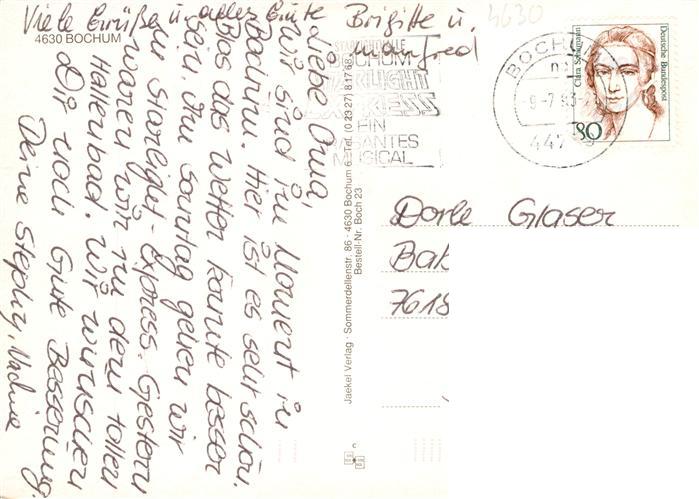 Viele Grüße u. alles Gute Brigitte u.
Manfred
4630 BOCHUM
Liebe Oma,
wir sind im Moment in
Bochum. Hier ist es sehr schön.
Bos das Wetter könnte besser
sein. Am Sonntag gehen wir
zu Starlight-Express. Gestern
waren wir in dem tollen
Hallenbad. Wir wünschen
Dir noch Gute Besserung.
Deine Stephy, Nadine
Jaekel Verlag · Sommerdellenstr. 86 · 4630 Bochum 6 · Tel. (0 23 27) 8 17 68
Bestell-Nr. Boch 23
4630
BOCHUM-
STARLIGHT
EXPRESS
EIN
RASANTES
MUSICAL
BOCHUM
-9-7.93-
447
Clara Schumann
Deutsche Bundespost
80
Dorle Glaser
Bak
7618